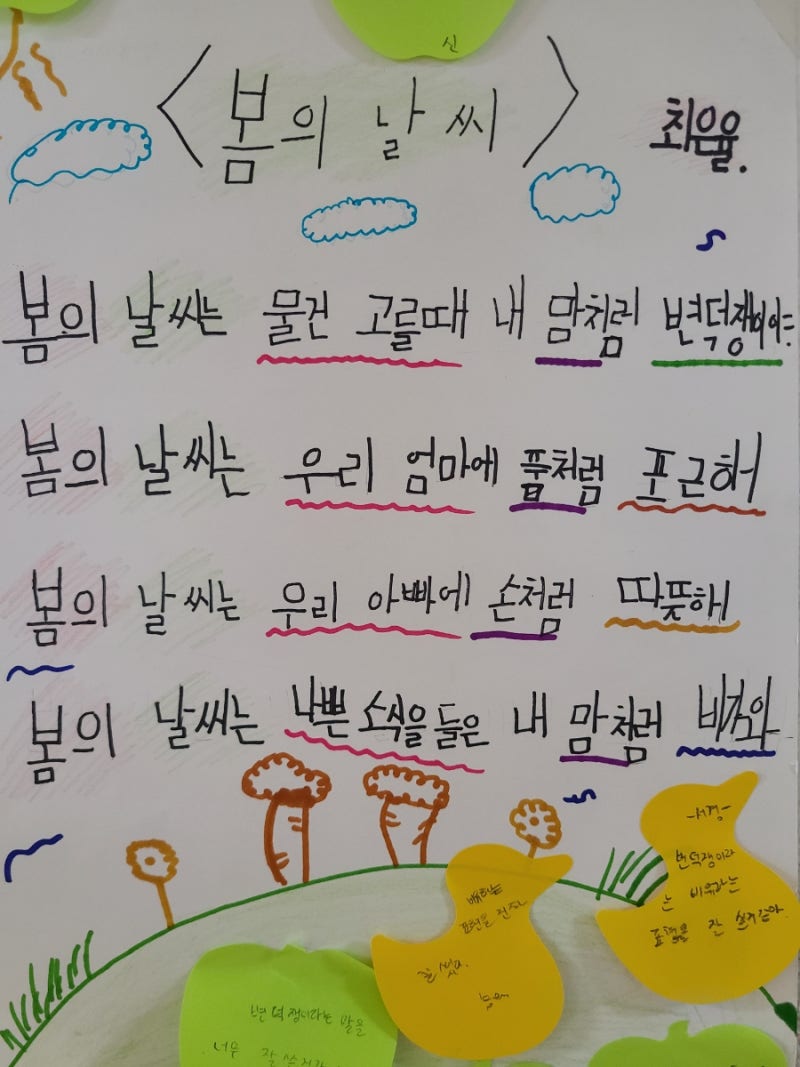 신
<봄의 날씨>
최은율.
봄의 날씨는 물건 고를때 내 맘처럼 변덕쟁이야
봄의 날씨는 우리 엄마에 품처럼 포근해
봄의 날씨는 우리 아빠에 손처럼 따뜻해
봄의 날씨는 나쁜 소식을 들은 내 맘처럼 비가와
-서경-
변덕쟁이라
는 비유라는
표현을 잔 쓴거같아
표현을
잘 썼다.
변덕쟁이라는 말을
너무 잘